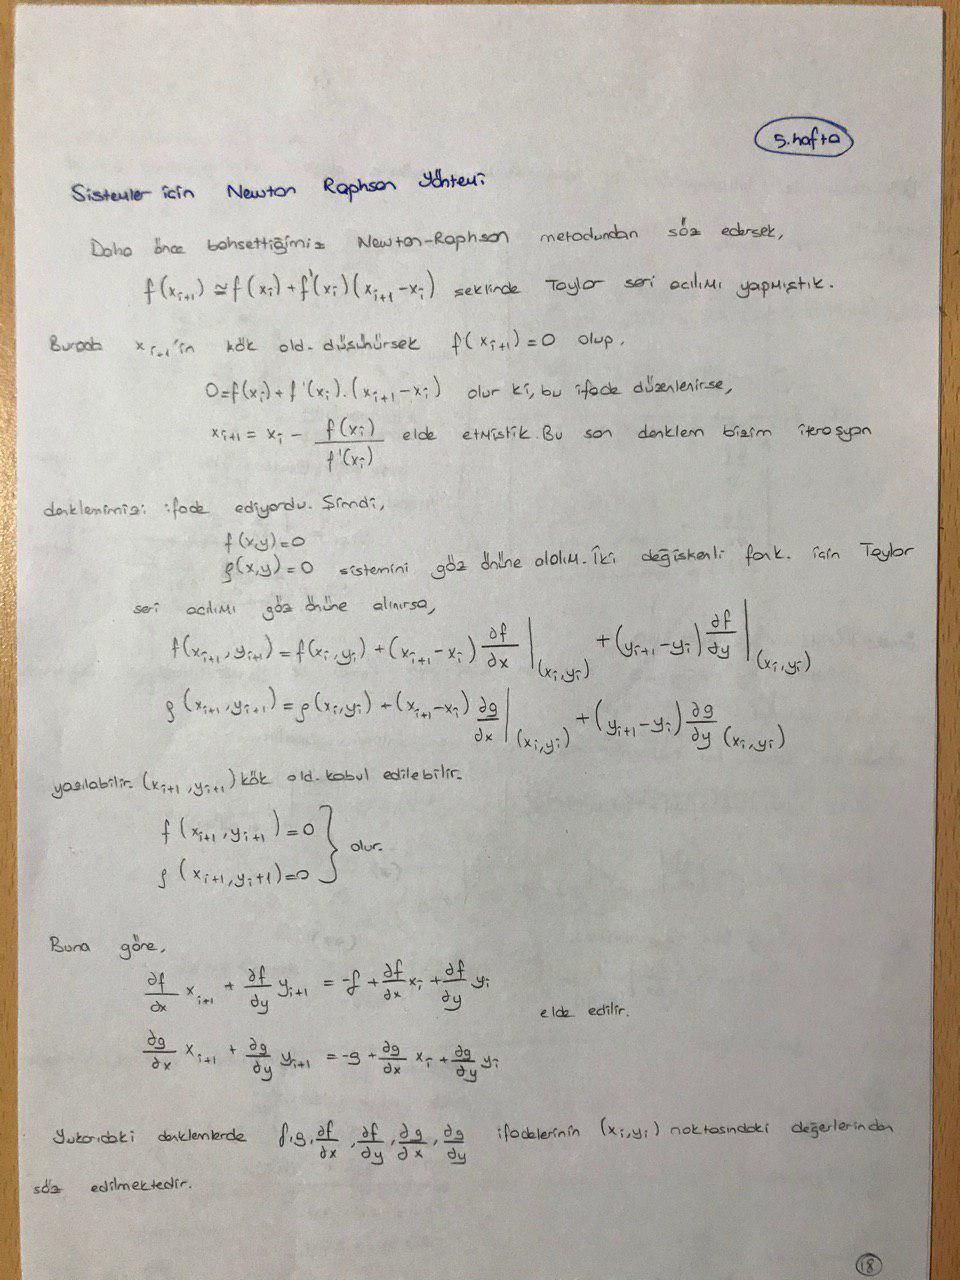 5.hafta
Sistemler için Newton Raphson Yöntemi
Daha önce bahsettiğimiz Newton-Raphson metodundan söz edersek,
f(xᵢ₊₁) ≅ f(xᵢ) + f'(xᵢ)(xᵢ₊₁ - xᵢ) şeklinde Taylor seri açılımı yapmıştık.
Burada xᵢ₊₁'in kök old. düşünürsek f(xᵢ₊₁) = 0 olup,
0 = f(xᵢ) + f'(xᵢ).(xᵢ₊₁ - xᵢ) olur ki, bu ifade düzenlenirse,
xᵢ₊₁ = xᵢ - f(xᵢ)/f'(xᵢ) elde etmiştik. Bu son denklem bizim iterasyon
denklemimizi ifade ediyordu. Şimdi,
f(x,y)=0
g(x,y)=0 sistemini göz önüne alalım. İki değişkenli fonk. için Taylor
seri açılımı göz önüne alınırsa,
f(xᵢ₊₁, yᵢ₊₁) = f(xᵢ, yᵢ) + (xᵢ₊₁ - xᵢ) ∂f/∂x |(xᵢ, yᵢ) + (yᵢ₊₁ - yᵢ) ∂f/∂y |(xᵢ, yᵢ)
g(xᵢ₊₁, yᵢ₊₁) = g(xᵢ, yᵢ) + (xᵢ₊₁ - xᵢ) ∂g/∂x |(xᵢ, yᵢ) + (yᵢ₊₁ - yᵢ) ∂g/∂y (xᵢ, yᵢ)
yazılabilir. (xᵢ₊₁, yᵢ₊₁) kök old. kabul edilebilir.
f(xᵢ₊₁, yᵢ₊₁) = 0
g(xᵢ₊₁, yᵢ+1) = 0 } olur.
Buna göre,
∂f/∂x xᵢ₊₁ + ∂f/∂y yᵢ₊₁ = -f + ∂f/∂x xᵢ + ∂f/∂y yᵢ
elde edilir.
∂g/∂x xᵢ₊₁ + ∂g/∂y yᵢ₊₁ = -g + ∂g/∂x xᵢ + ∂g/∂y yᵢ
Yukarıdaki denklemlerde f, g, ∂f/∂x, ∂f/∂y, ∂g/∂x, ∂g/∂y ifadelerinin (xᵢ, yᵢ) noktasındaki değerlerinden
söz edilmektedir.
18